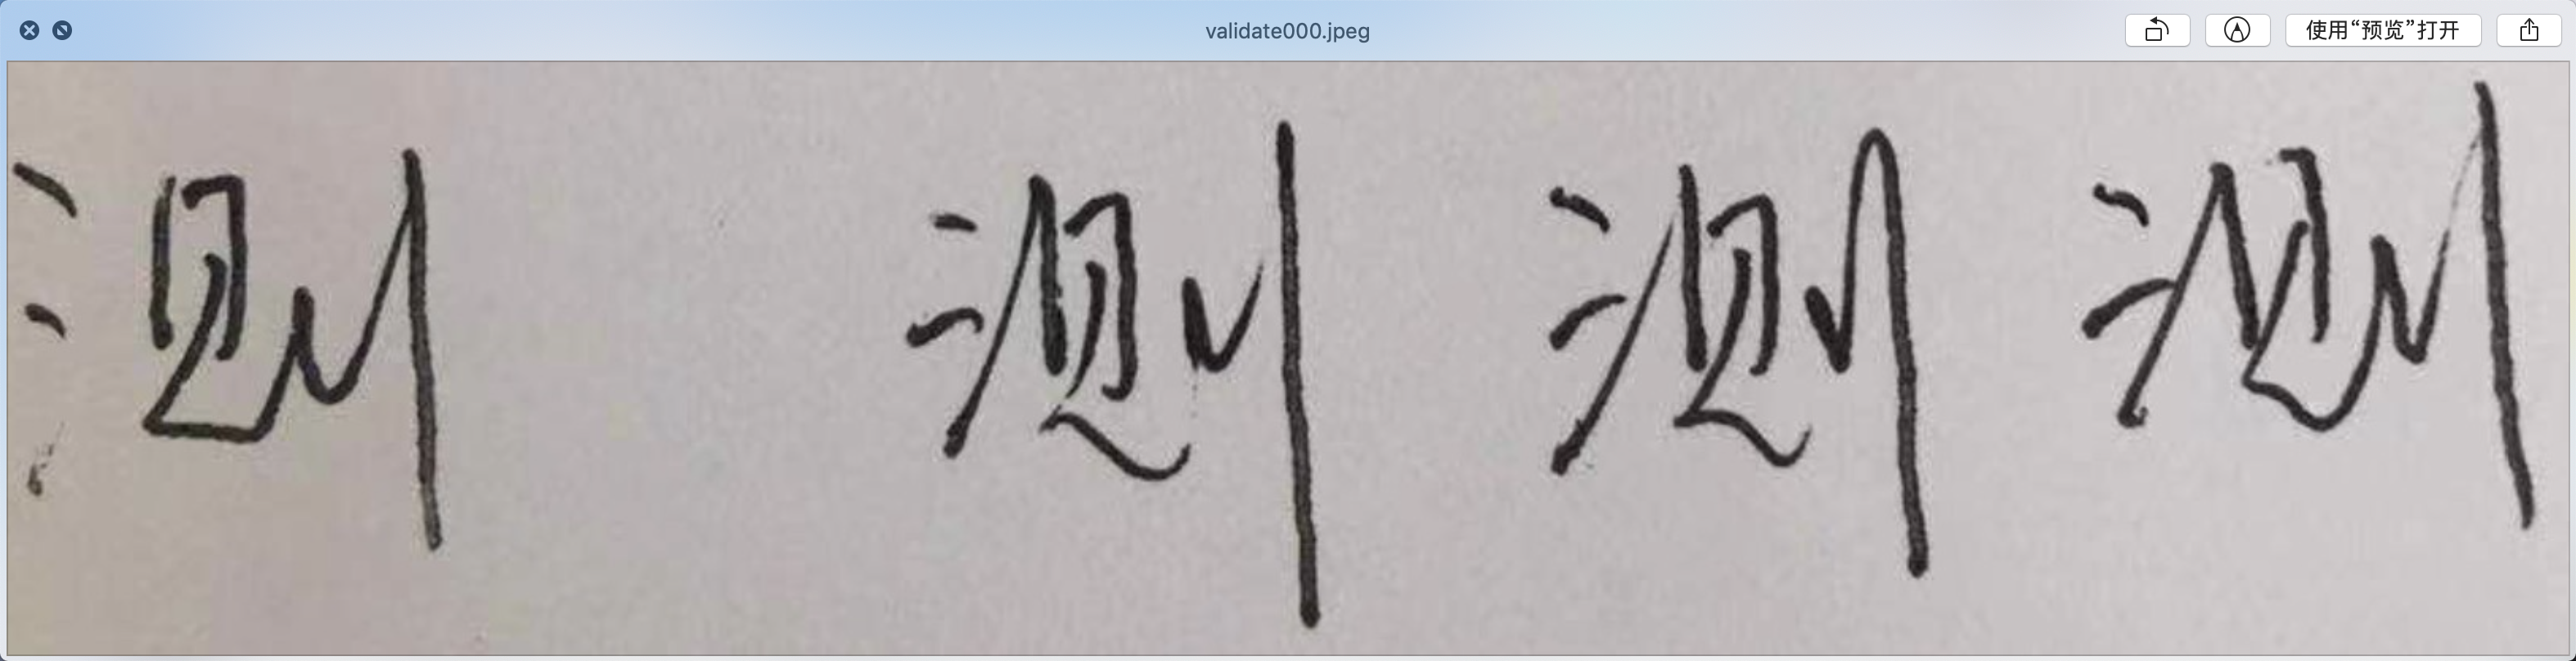 validate000.jpeg
使用“预览”打开
测 测 测 测